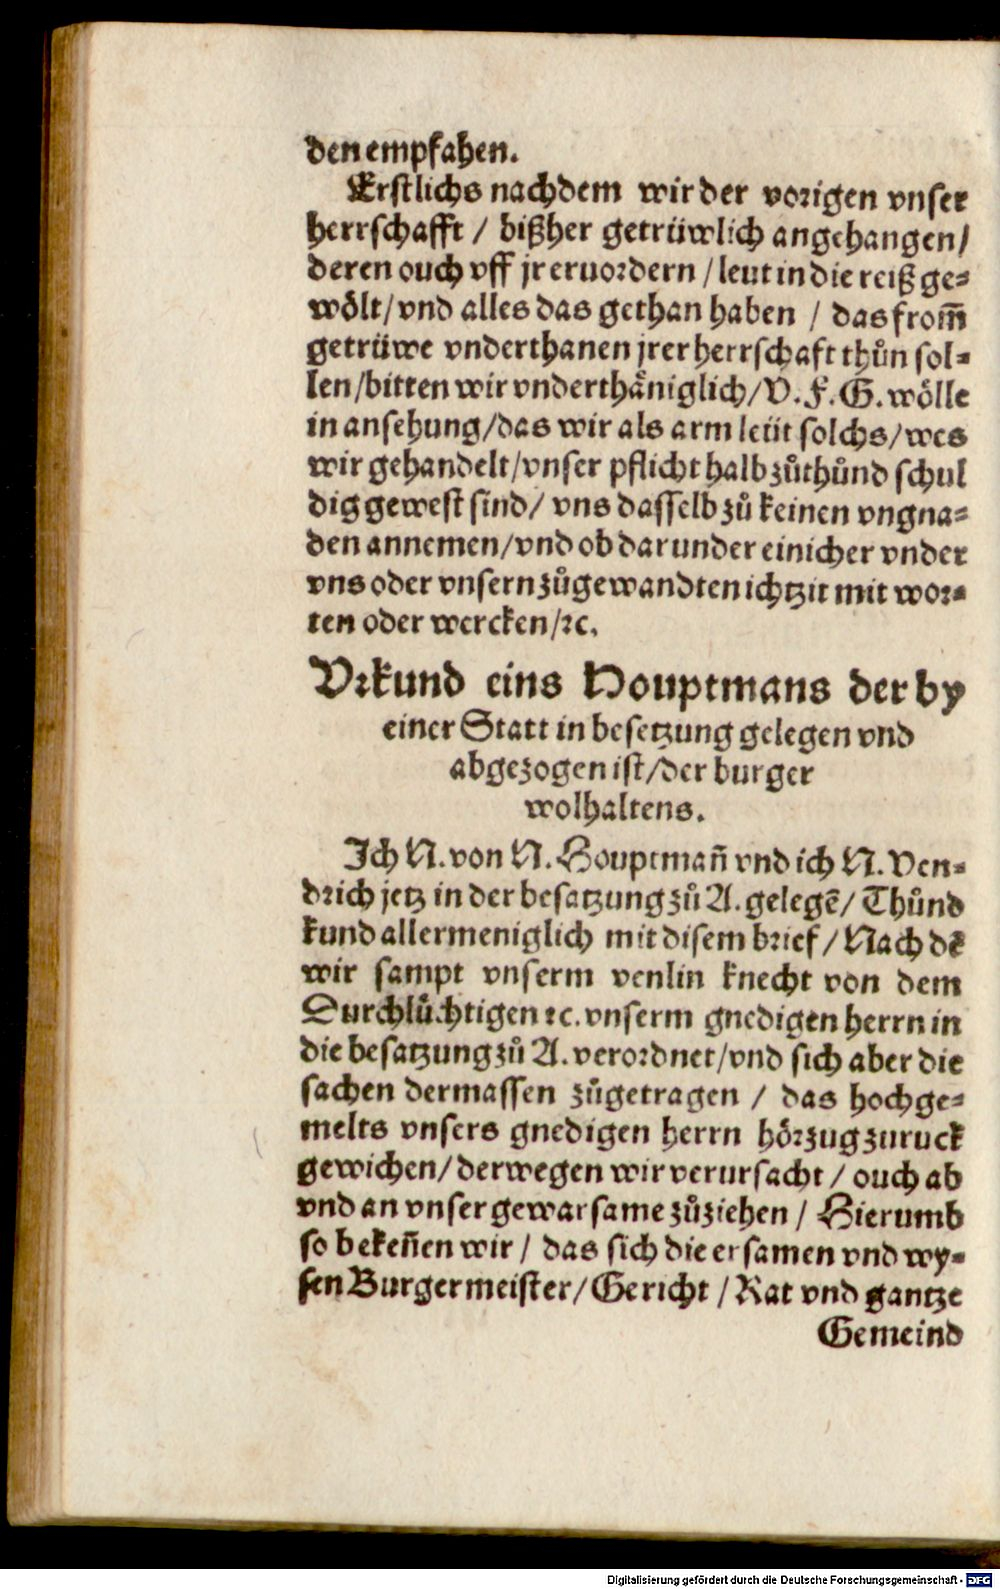 den empfahen.
Erstlichs nachdem wir der vorigen vnser
herrschafft / bißher getrüwlich angehangen /
deren ouch vff jr eruordern / leut in die reiß ge-
wölt / vnd alles das gethan haben / das from̃
getrüwe vnderthanen jrer herrschaft thůn sol-
len / bitten wir vnderthäniglich / V. F. G. wölle
in ansehung / das wir als arm leüt solchs / wes
wir gehandelt / vnser pflicht halb zůthůnd schul
dig gewest sind / vns dasselb zů keinen vngna-
den annemen / vnd ob darunder einicher vnder
vns oder vnsern zůgewandten ichtzit mit wor-
ten oder wercken / ꝛc.
Vrkund eins Houptmans der by
einer Statt in besetzung gelegen vnd
abgezogen ist / der burger
wolhaltens.
Ich N. von N. Houptmañ vnd ich N. Ven-
drich jetz in der besatzung zů A. gelegẽ / Thůnd
kund allermeniglich mit disem brief / Nach dẽ
wir sampt vnserm venlin knecht von dem
Durchlüchtigen ꝛc. vnserm gnedigen herrn in
die besatzung zů A. verordnet / vnd sich aber die
sachen dermassen zůgetragen / das hochge-
melts vnsers gnedigen herrn hörzug zuruck
gewichen / derwegen wir verursacht / ouch ab
vnd an vnser gewarsame zůziehen / Hierumb
so bekeñen wir / das sich die ersamen vnd wy-
sen Burgermeister / Gericht / Rat vnd gantze
Gemeind
Digitalisierung gefördert durch die Deutsche Forschungsgemeinschaft - DFG